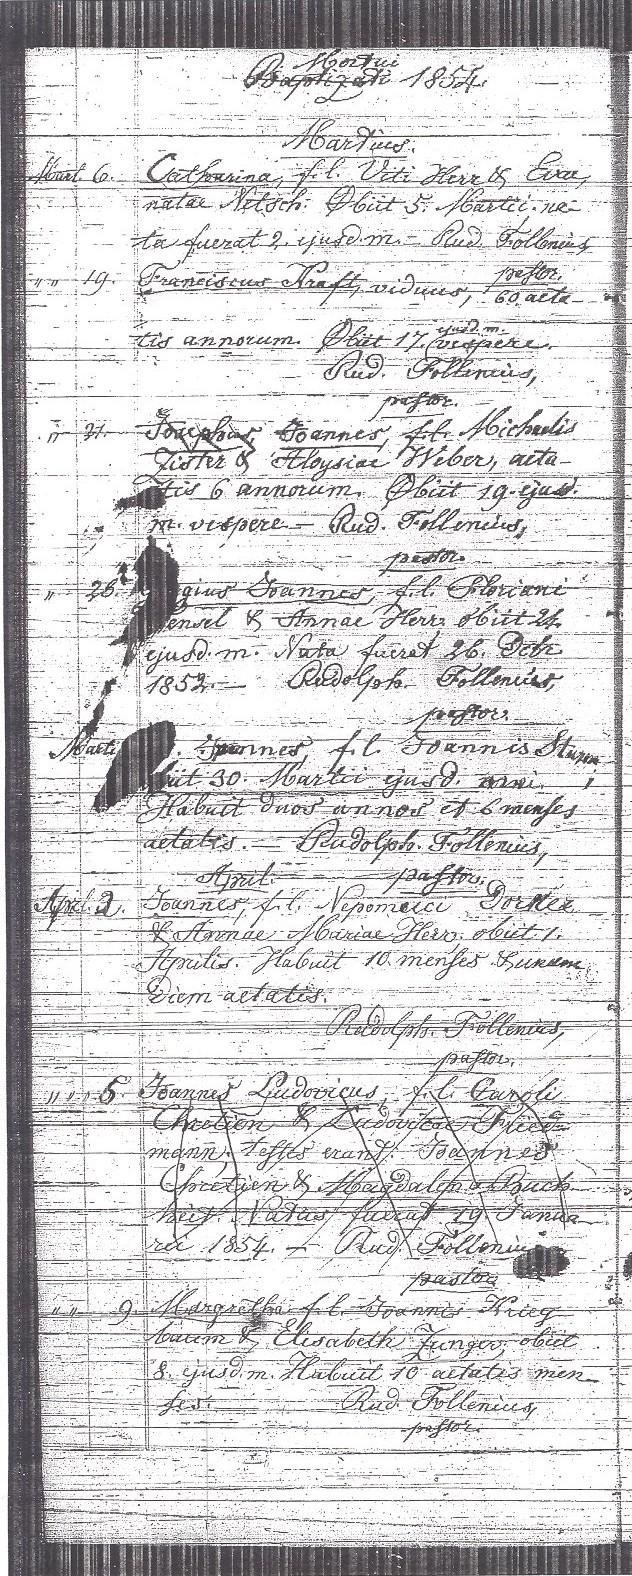 Mortui
Baptizati 1854.
Martius.
Mart. 6. Catharina, f. l. Viti Herr & Evae,
natae Netsch. Obiit 5. Martii. na-
ta fuerat 2. ejusd. m. — Rud. Follenius,
pastor.
" " 19. Franciscus Kraft, viduus, 60 aeta-
tis annorum. Obiit 17. ejusd. m. vespere.
Rud. Follenius,
pastor.
" 21. Josephus, Joannes, f. l. Michaelis
Zister & Aloysiae Weber, aeta-
tis 6 annorum. Obiit 19. ejusd.
m. vespere. — Rud. Follenius,
pastor.
" 26. Joannes, f. l. Floriani
Hensel & Annae Herr. obiit 24.
ejusd. m. Nata fuerat 26. Debr
1852. — Rudolph. Follenius,
pastor.
Joannes, f. l. Joannis Sturm,
obiit 30. Martii ejusd. anni.
Habuit duos annos et 6 menses
aetatis. — Rudolph. Follenius,
April. pastor.
April. 2. Joannes, f. l. Nepomuci
& Annae Mariae Herr, obiit 1.
Aprilis. Habuit 10 menses & unum
diem aetatis.
Rudolph. Follenius,
pastor.
" " " 5. Joannes Ludovicus, f. l. Caroli
Chretien & Ludovicae Fried-
mann; testes erant: Joannes
Chretien & Magdalena Buch-
heit. Natus fuerat 19 Janua-
rii 1854. — Rud. Follenius,
pastor
" " 9. Margretha f. l. Joannis Krieg-
baum & Elisabeth Zunger, obiit
8. ejusd. m. Habuit 10 aetatis men-
ses. Rud. Follenius,
pastor.